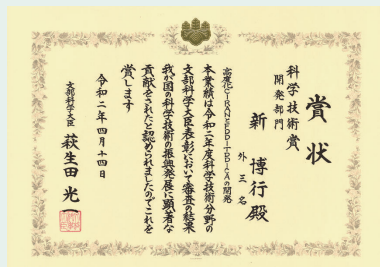 賞状
科学技術賞
開発部門
新 博行殿
外三名
の開発
本業績は令和二年度科学技術分野の
文部科学大臣表彰において審査の結果
我が国の科学技術の振興発展に顕著な
貢献をされたと認められましたのでこれを
賞します
令和二年四月十四日
文部科学大臣
萩生田 光一